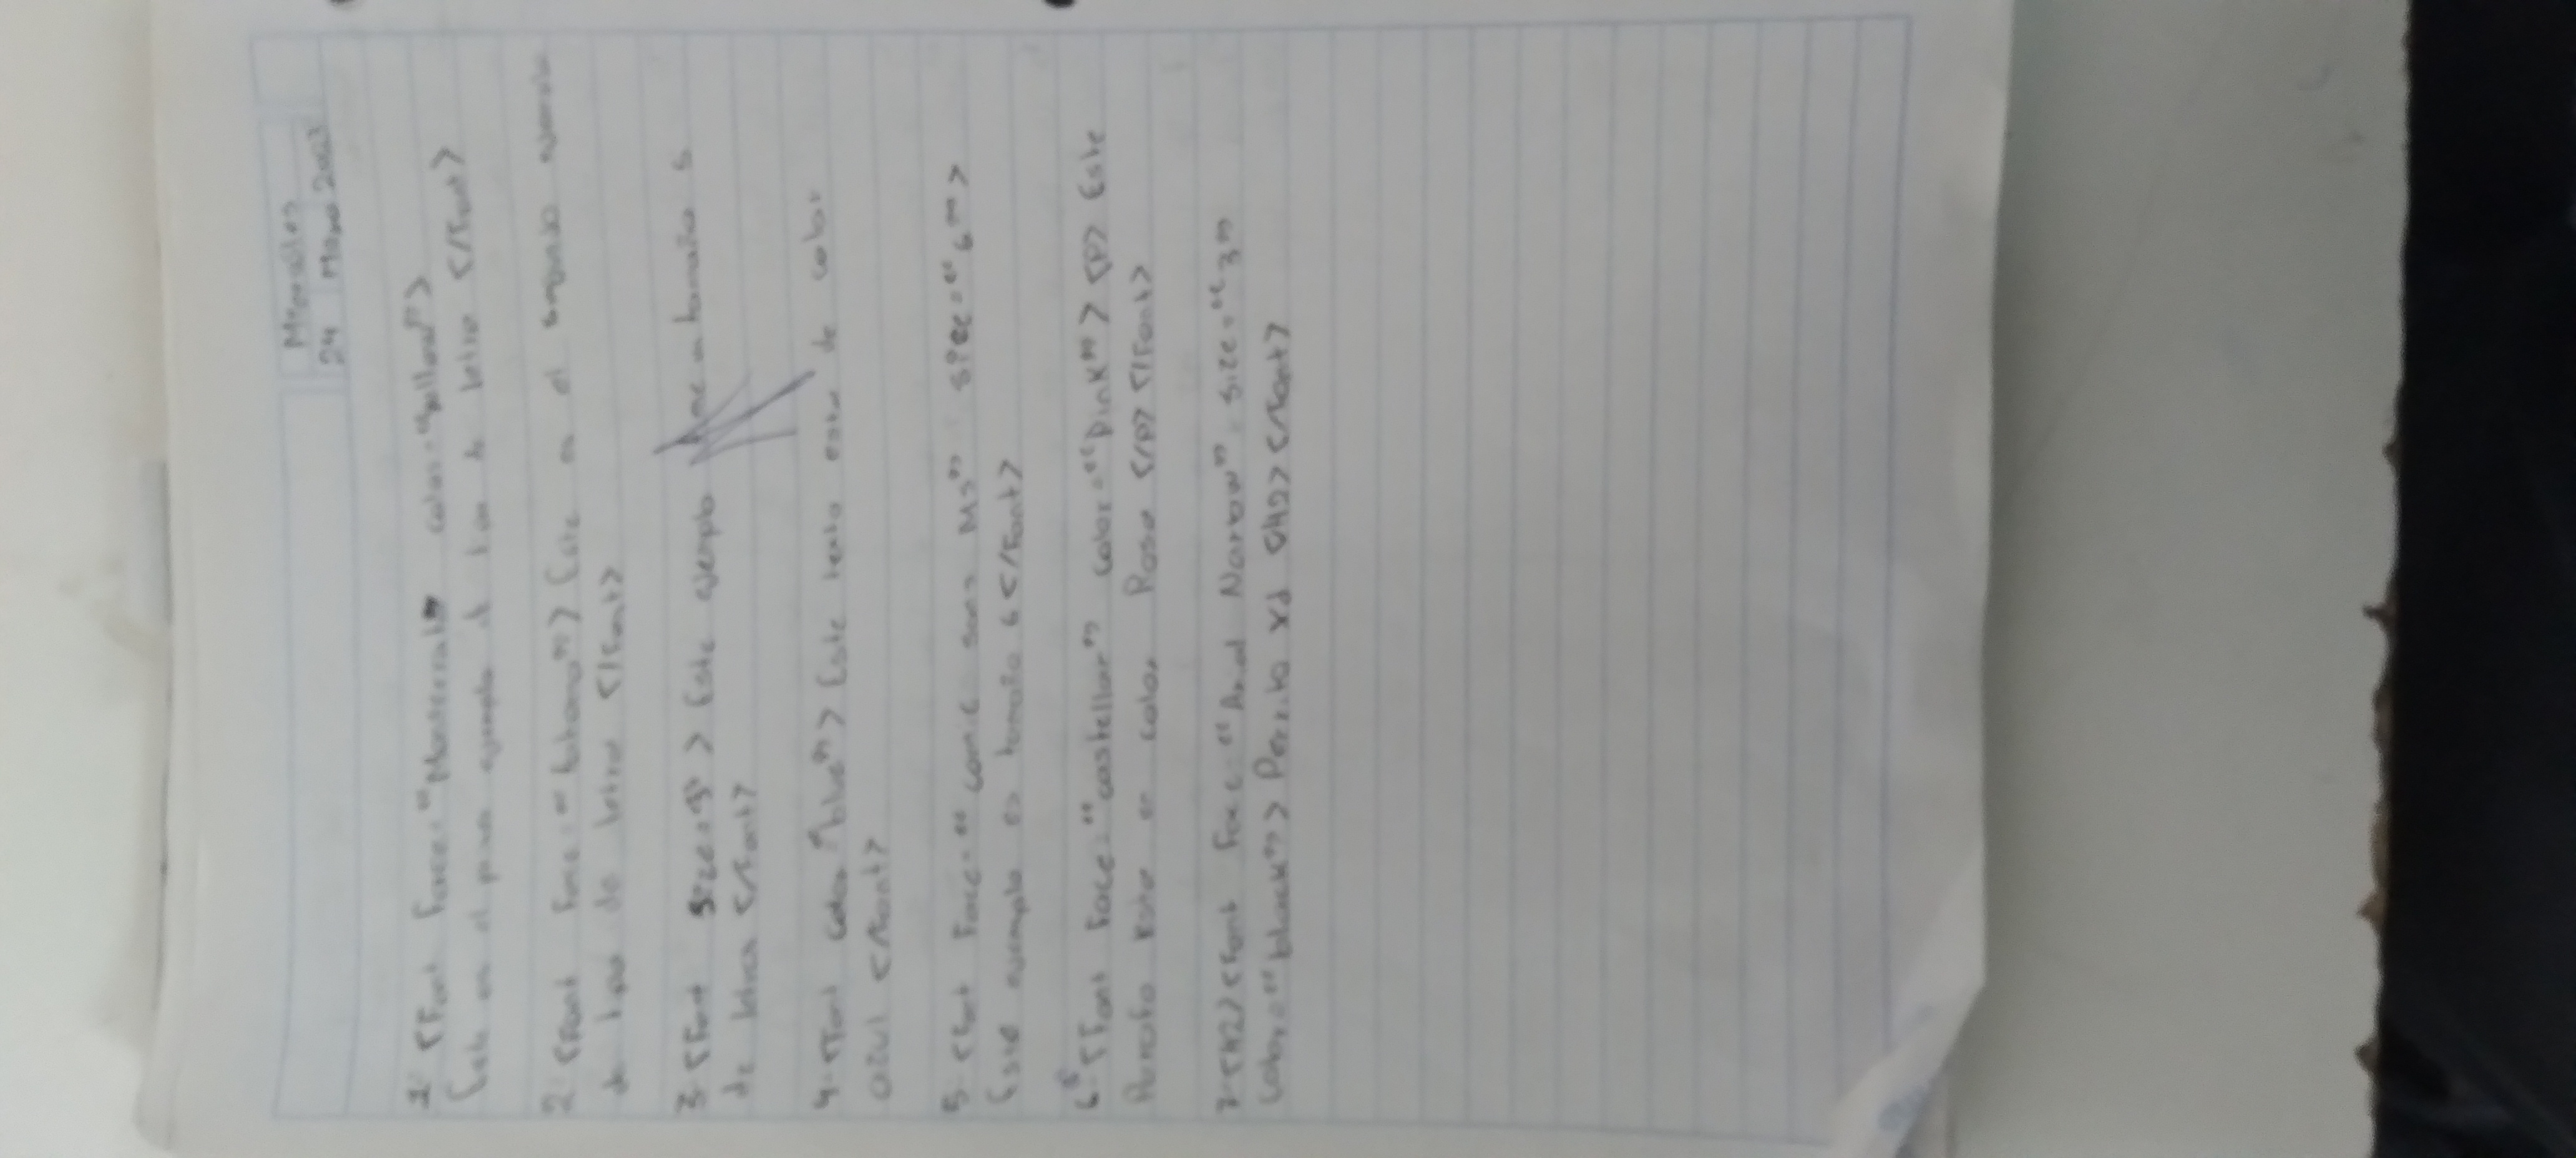 Miercoles
24 Mayo 2023
1- <Font Face="Monserrat" color="yellow">
Este es el ejemplo de tipo de letra </Font>
2- <Font Face="tahoma"> Este es el segundo ejemplo
de tipo de letra </Font>
3- <Font size=5"> Este ejemplo tamaño 5
de letra </Font>
4- <Font color "blue"> Este texto esta de color
azul </Font>
5- <Font Face="comic sans MS" size="6">
Este ejemplo es tamaño 6 </Font>
6- <Font Face="castellar" color="Pink"> <P> Este
Parrafo esta en color Rosa </P> </Font>
7- <H2> <Font Face "Arial Narow" size="3"
color="black"> Perrito xd <H2> </Font>